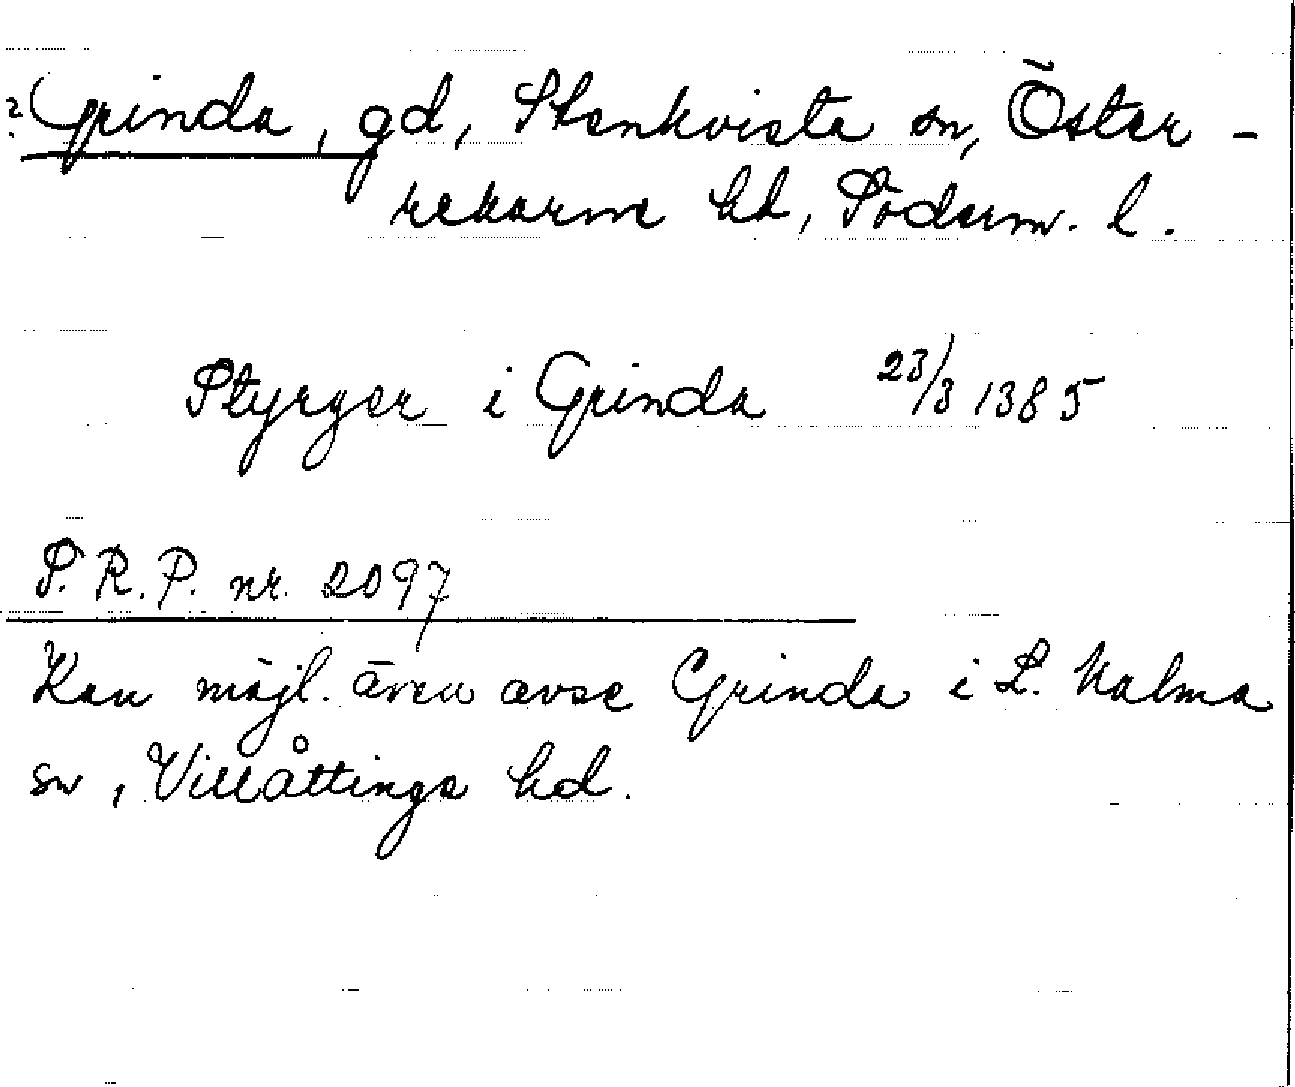 ? Grinda, gd, Stenkvista sn, Öster-
rekarne hd, Söderm. l.
Styrger i Grinda 23/3 1385
S.R.P. nr. 2097
Kan möjl. även avse Grinda i L. Malma
sn, Villåttinge hd.